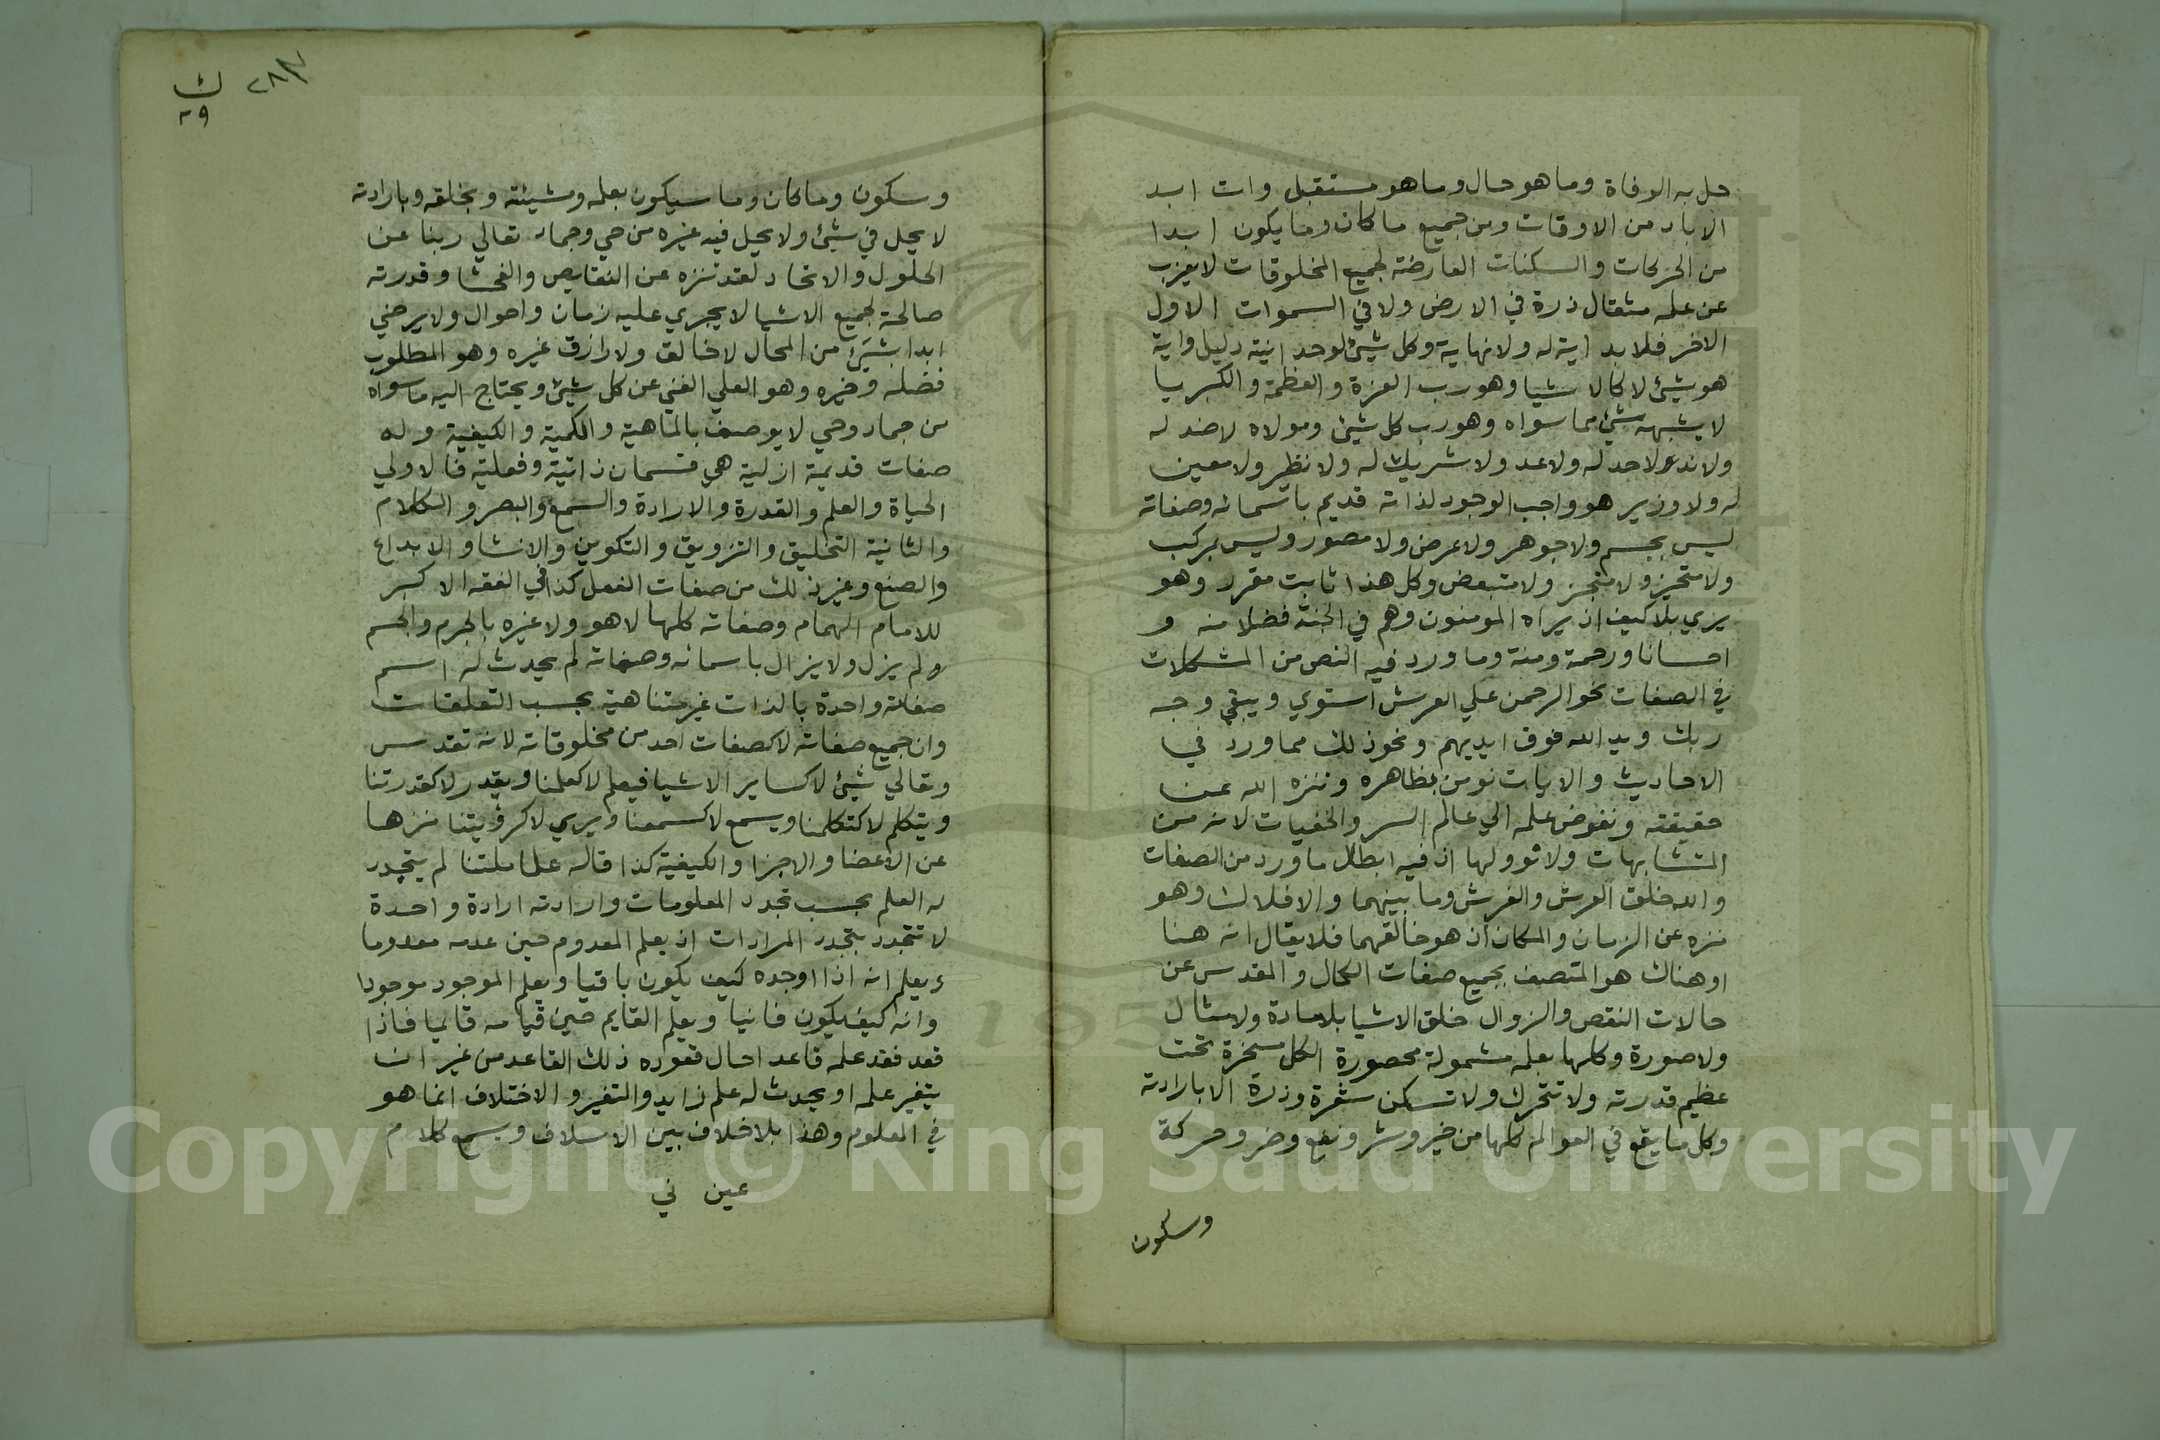 حل به الوفاة وما هو حال وما هو مستقبل وات ابد
الاباد من الاوقات ومن جميع ما كان وما يكون ابدا
من الحركات والسكنات العارضة لجميع المخلوقات لا يعزب
عن علمه مثقال ذرة في الارض ولا في السموات الاول
الاخر فلا بداية له ولا نهاية وكل شيئ لوحدانيته دليل واية
هو شيئ لا كالاشيا وهو رب العزة والعظمة والكبريا
لا يشبهه شيئ مما سواه وهو رب كل شيئ ومولاه لا ضد له
ولا ند ولا حد له ولا عد ولا شريك له ولا نظير ولا معين
له ولا وزير هو واجب الوجود لذاته قديم باسمائه وصفاته
ليس بجسم ولا جوهر ولا عرض ولا مصور وليس بمركب
ولا متحيز ولا متجز ولا متبعض وكل هذا ثابت مقرر وهو
يري بلا كيف اذ يراه المومنون وهم في الجنة فضلا منه و
احسانا ورحمة ومنة وما ورد فيه النص من المشكلات
في الصفات نحو الرحمن علي العرش استوي ويبقي وجه
ربك ويد الله فوق ايديهم ونحو ذلك مما ورد في
الاحاديث والايات نومن بظاهره وننزه الله عن
حقيقته ونفوض علمه الي عالم السر والخفيات لانه من
المتشابهات ولا نوولها اذ فيه ابطال ما ورد من الصفات
والله خلق العرش والفرش وما بينهما والافلاك وهو
نزه عن الزمان والمكان اذ هو خالقهما فلا يقال انه هنا
او هناك هو المتصف بجميع صفات الكمال والمقدس عن
حالات النقص والزوال خلق الاشيا بلا مادة ولا مثال
ولا صورة وكلها بعلمه مشمولة محصورة الكل مسخرة تحت
عظيم قدرته ولا تتحرك ولا تسكن شعرة وذرة الا بارادته
وكل ما يقع في العوالم كلها من خير وشر ونفع وضر وحركة
وسكون
٢٨٧
ك
٣٩
وسكون وما كان وما سيكون بعلمه ومشيئته وبخلقه وبارادته
لا يحل في شيئ ولا يحل فيه غيره من حي وجماد تعالي ربنا عن
الحلول والاتحاد لقد تنزه عن النقايص والفحشا وقدرته
صالحة لجميع الاشيا لا يجري عليه زمان واحوال ولا يرضي
ابدا بشيئ من المحال لا خالق ولا رازق غيره وهو المطلوب
فضله وخيره وهو العلي الغني عن كل شيئ ويحتاج اليه ما سواه
من جماد وحي لا يوصف بالماهية والكمية والكيفية وله
صفات قديمة ازلية هي قسمان ذاتية وفعلية فالاولي
الحياة والعلم والقدرة والارادة والسمع والبصر والكلام
والثانية التخليق والتزويق والتكوين والانشا والابداع
والصنع وغير ذلك من صفات الفعل كذا في الفقه الاكبر
للامام الهمام وصفاته كلها لا هو ولا غيره بالجرم والجسم
ولم يزل ولا يزال باسمائه وصفاته لم يحدث له اسم
صفاته واحدة بالذات غير متناهية بحسب التعلقات
وان جميع صفاته لا كصفات احد من مخلوقاته لانه تقدس
وتعالي شيئ لا كساير الاشيا فيعلم لا كعلمنا ويقدر لا كقدرتنا
ويتكلم لا كتكلمنا ويسمع لا كسمعنا ويري لا كرؤيتنا نزها
عن الاعضا والاجزا والكيفية كذا قاله علما ملتنا لم يتجدد
له العلم بحسب تجدد المعلومات وارادته ارادة واحدة
لا تتجدد بتجدد المرادات اذ يعلم المعدوم حين عدمه معدوما
ويعلم انه اذا اوجده كيف يكون باقيا ويعلم الموجود موجودا
وانه كيف يكون فانيا ويعلم القايم حين قيامه قائما فاذا
قعد فقد علمه قاعدا حال قعوده ذلك القاعد من غير ان
يتغير علمه او يحدث له علم زايد والتغير والاختلاف انما هو
في المعلوم وهذا بلا خلاف بين الاسلاف ويسمع كلام
Copyright © King Saud University